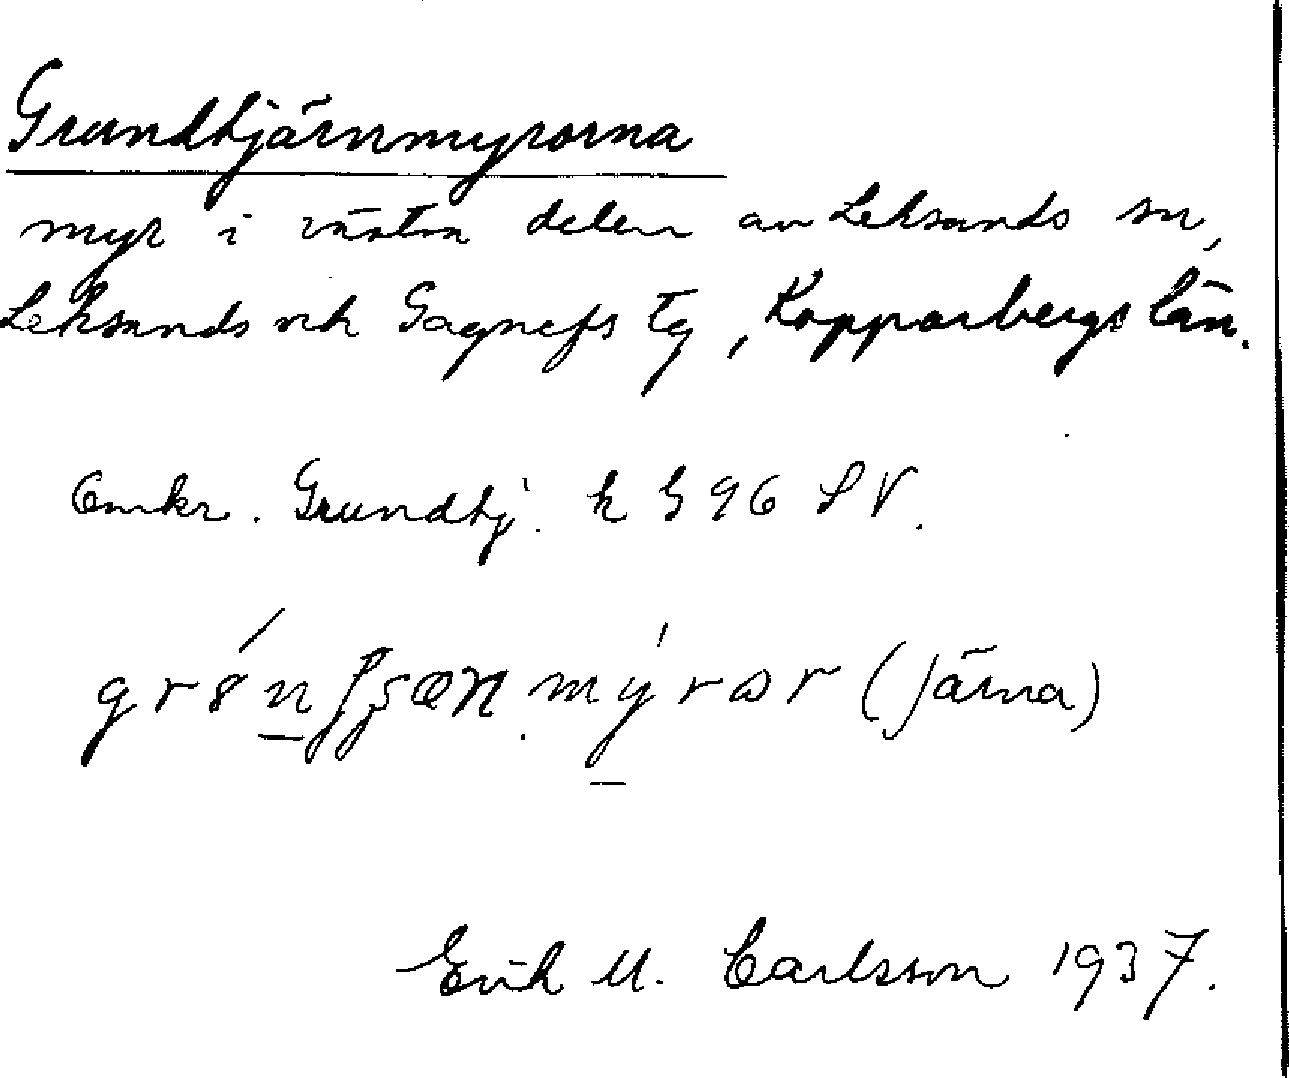 Grundtjärnmyrorna
myr i västra delen av Leksands sn,
Leksands och Gagnefs tg, Kopparbergs län.
Omkr. Grundtj. k G 96 SV.
(Järna)
Erik M. Carlsson 1937.